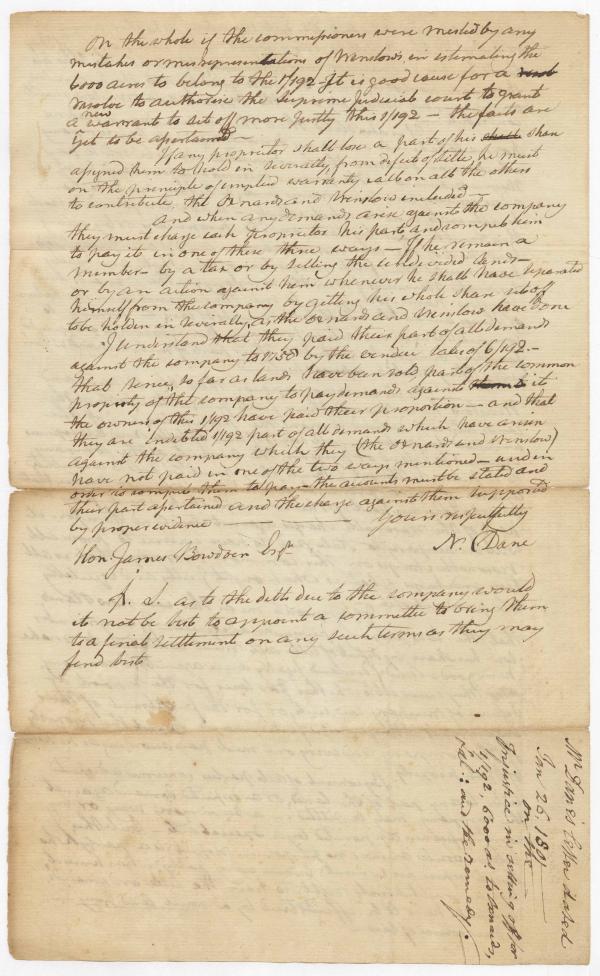 On the whole if the commissioners were misled by any
mistakes or misrepresentations of Winslows, in estimating the
6000 acres to belong to the 1/192 It is good cause for a
resolve to authorise the Supreme Judicial court to grant
a new warrant to set off more justly this 1/192 — the facts are
yet to be ascertained —
If any proprietor shall lose a part of his share
assigned them to hold in severalty, from defect of title, he must
on the principle of implied warranty call on all the others
to contribute, the and Winslow included —
And when any demands arise against the company
they must charge each proprietor his part, and compel him
to pay it in one of these three ways — If he remain a
member — by a tax or by selling the undivided lands —
or by an action against him whenever he shall have separated
himself from the company by getting his whole share set off
to be holden in severalty, as the and Winslow have done
I understand that they paid their part of all demands
against the company to by the vendue sales of 6/192. —
that since, so far as lands have been sold part of the common
property of the company to pay demands against it
the owners of this 1/192 have paid their proportion — and that
they are indebted 1/192 part of all demands which have arisen
against the company which they (the and Winslow)
have not paid in one of the two ways mentioned — and in
order to compel them to pay — the accounts must be stated and
their part ascertained and the charge against them supported
by proper evidence — — Yours respectfully
N. Dane
Hon. James Bowdoin Esqr
P. S. as to the debts due to the company would
it not be best to appoint a committee to bring them
to a final settlement on any such terms as they may
find best
Mr Danes letter dated
Jan 26. 1801
on the
Injustice in setting off for
1/192, 6000 as. to
&al: and the remedy.